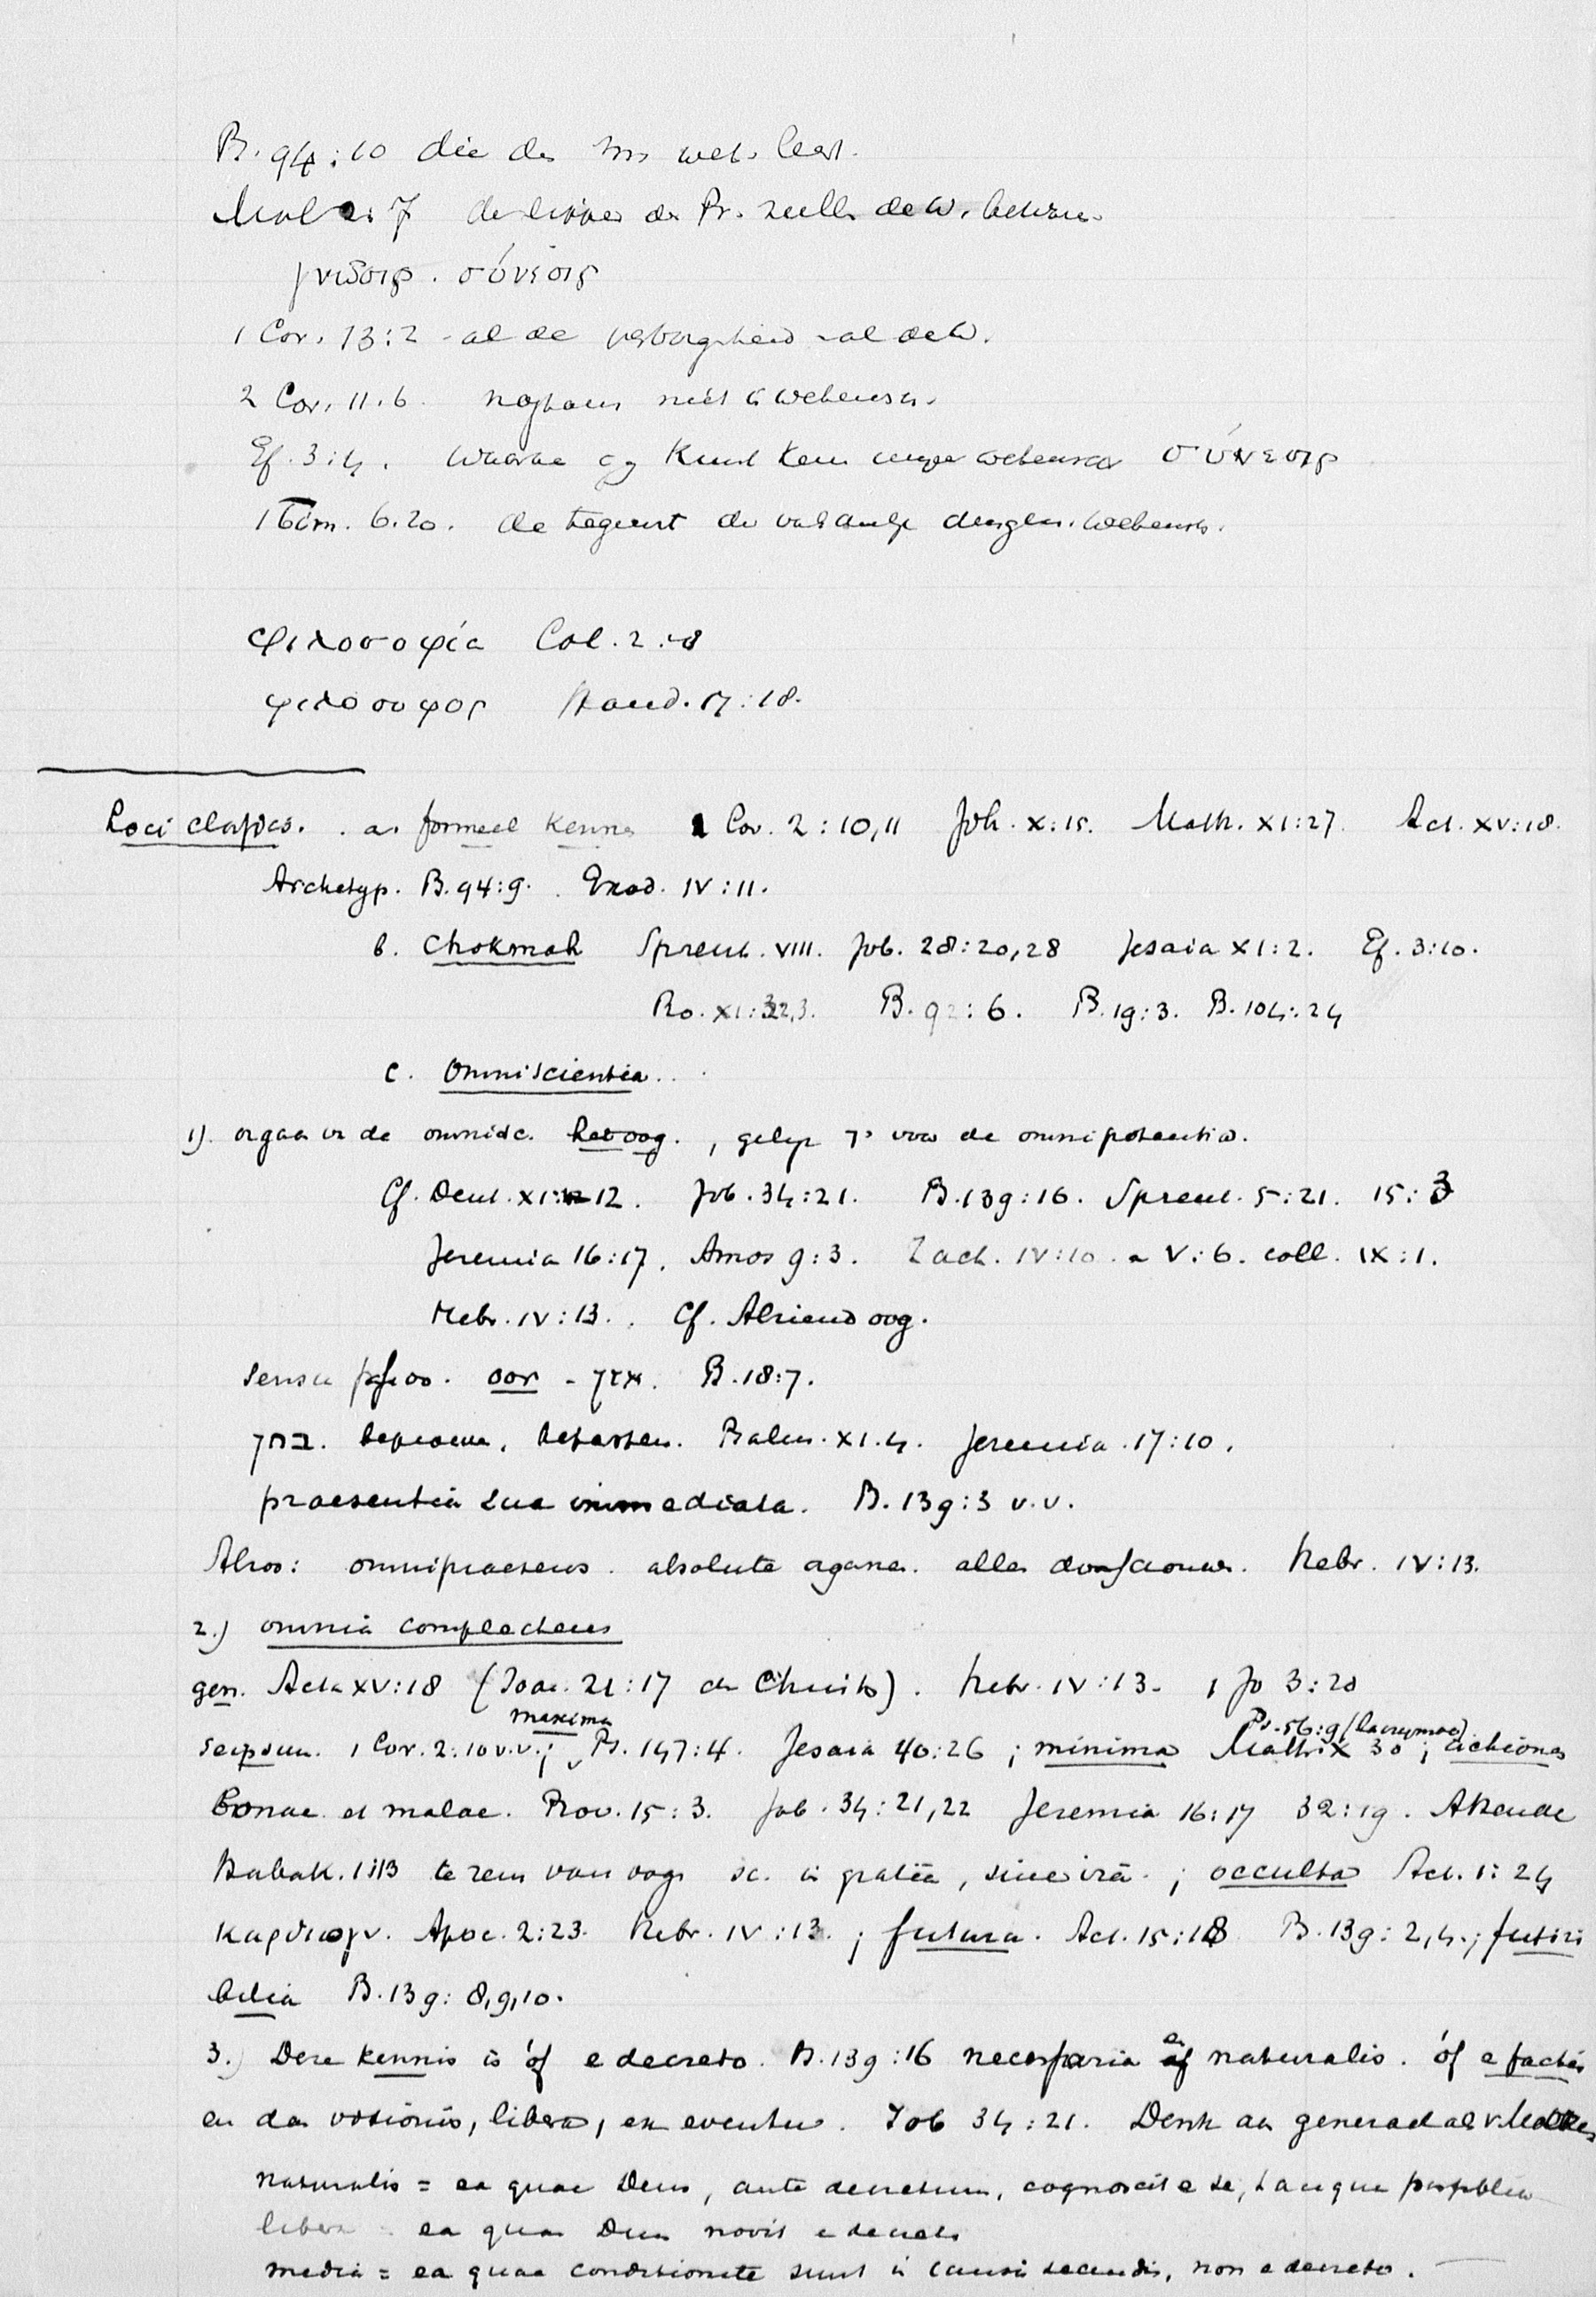 Ps. 94:10 die den mens wet. leert.
Mal 2:7 de lippen der Pr. zullen de W. bewaren.
γνῶσις. σύνεσις
1 Cor. 13:2 - al de verborgenheid - al de W.
2 Cor. 11.6. nogtans niet in wetensch.
Ef. 3:4. Waaraan gij kunt kennen mijne wetensch. σύνεσις
1 Tim. 6.20. de tegenst. der valschelijk dusgen. wetensch.
φιλοσοφία Col. 2:8
φιλοσοφος Hand. 17:18.
Loci classici. a. formeel kennen 1 Cor. 2:10,11 Joh. X:15. Matth. XI:27. Act. XV:18.
Archetyp. Ps. 94:9. Exod. IV:11.
b. Chokmah Spreuk. VIII. Job. 28:20,28 Jesaia XI:2. Ef. 3:10.
Ro. XI:33. Ps. 92:6. Ps. 19:3. Ps. 104:24
c. Omniscientia.
1). orgaan vr de omnisc. het oog., gelijk יד voor de omnipotentia.
Cf. Deut. XI:12. Job. 34:21. Ps. 139:16. Spreuk. 5:21. 15:3
Jeremia 16:17. Amos 9:3. Zach. IV:10. V:6. coll. IX:1.
Hebr. IV:13. Cf. Alziend oog.
sensu oor - אזן. Ps. 18:7.
בחן. beproeven, betasten. Psalm. XI.4. Jeremia. 17:10.
praesentia sua immediata. Ps. 139:3 v.v.
Alzoo: omnipraesens. absolute agnosc. alles doorschouwd. Hebr. IV:13.
2.) omnia complectens
gen. Acta XV:18 (Joan. 21:17 de Christo). Hebr. IV:13. 1 Jo 3:20
seipsum. 1 Cor. 2:10 v.v.; maxima Ps. 147:4. Jesaia 40:26; minima Matth X 30; Ps. 56:9 (lacrymae). actiones
bonae et malae. Prov. 15:3. Job. 34:21,22 Jeremia 16:17 32:19.
Habak. 1:13 te rein van oogen sc. in gratiâ, sine irâ.; occulta Act. 1:24
καρδιογν. Apoc. 2:23. Hebr. IV:13.; futura. Act. 15:18 Ps. 139:2,4.; futuri
bilia Ps. 139:8,9,10.
3.) Deze kennis is óf e decreto. Ps. 139:16 necessaria en naturalis. óf e factis
en dan visionis, libera, ex eventu. Job 34:21. Denk aan generaal als v. Moltke
naturalis = ea quae Deus, ante decretum, cognoscit e se, tanquam possibilia
libera = ea quae Deus novit e decreto
media = ea quae conditionate sunt in causis secundis, non e decreto.